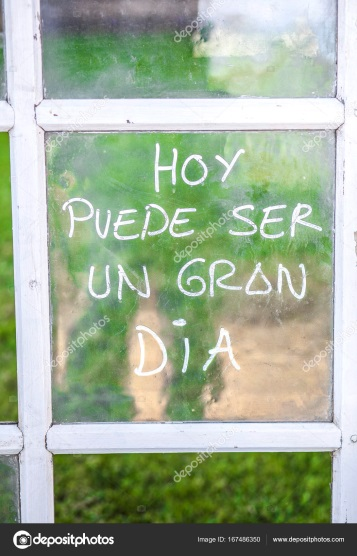 HOY
PUEDE SER
UN GRAN
DiA
depositphotos
Image ID: 167486350 www.depositphotos.com